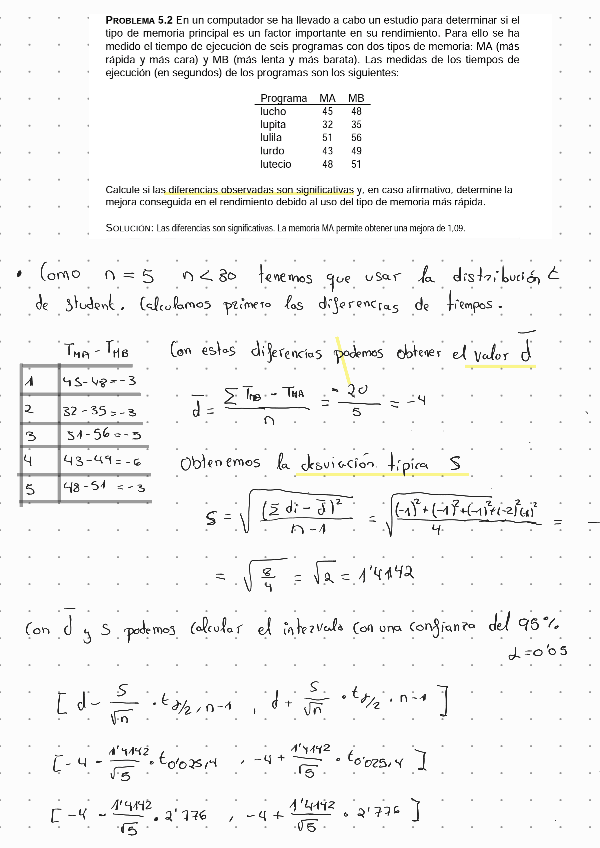 PROBLEMA 5.2 En un computador se ha llevado a cabo un estudio para determinar si el
tipo de memoria principal es un factor importante en su rendimiento. Para ello se ha
medido el tiempo de ejecución de seis programas con dos tipos de memoria: MA (más
rápida y más cara) y MB (más lenta y más barata). Las medidas de los tiempos de
ejecución (en segundos) de los programas son los siguientes:
Programa MA MB
lucho 45 48
lupita 32 35
lulila 51 56
lurdo 43 49
lutecio 48 51
Calcule si las diferencias observadas son significativas y, en caso afirmativo, determine la
mejora conseguida en el rendimiento debido al uso del tipo de memoria más rápida.
SOLUCIÓN: Las diferencias son significativas. La memoria MA permite obtener una mejora de 1,09.
• Como n = 5 n < 30 tenemos que usar la distribución t
de Student. Calculamos primero las diferencias de tiempos.
T_MA - T_MB
1 45-48 = -3
2 32-35 = -3
3 51-56 = -5
4 43-49 = -6
5 48-51 = -3
Con estas diferencias podemos obtener el valor d̄
d̄ = (Σ T_MB - T_MA)/n = -20/5 = -4
Obtenemos la desviación típica S
S = √((Σ di - d̄)²/(n-1)) = √(((-1)²+(-1)²+(-1)²+(-2)²(1)²)/4) =
= √(8/4) = √2 = 1'4142
Con d̄ y S podemos calcular el intervalo con una confianza del 95%
α = 0'05
[ d - S/√n · t α/2, n-1 , d + S/√n · t α/2, n-1 ]
[ -4 - 1'4142/√5 · t 0'025,4 , -4 + 1'4142/√5 · t 0'025,4 ]
[ -4 - 1'4142/√5 · 2'776 , -4 + 1'4142/√5 · 2'776 ]